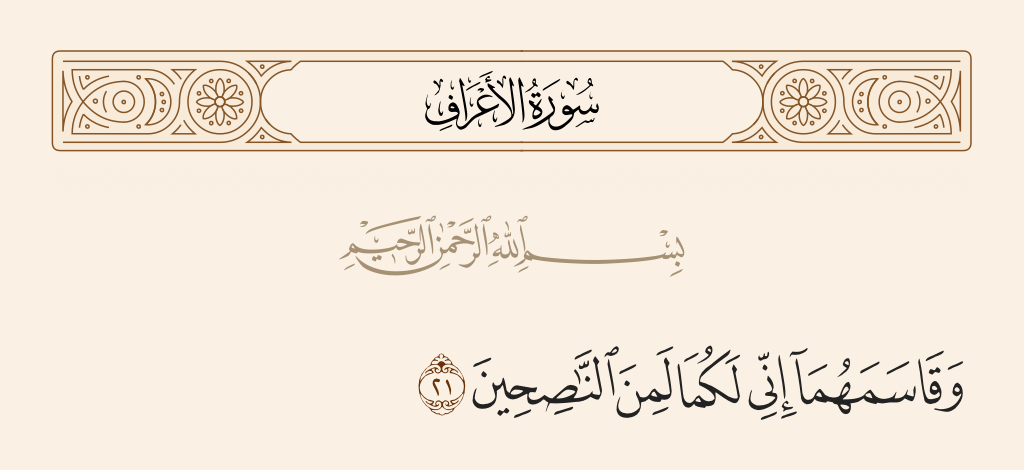 سُورَةُ الأَعْرَافِ
بِسْمِ ٱللَّهِ ٱلرَّحْمَٰنِ ٱلرَّحِيمِ
وَقَاسَمَهُمَآ إِنِّي لَكُمَا لَمِنَ ٱلنَّٰصِحِينَ ٢١